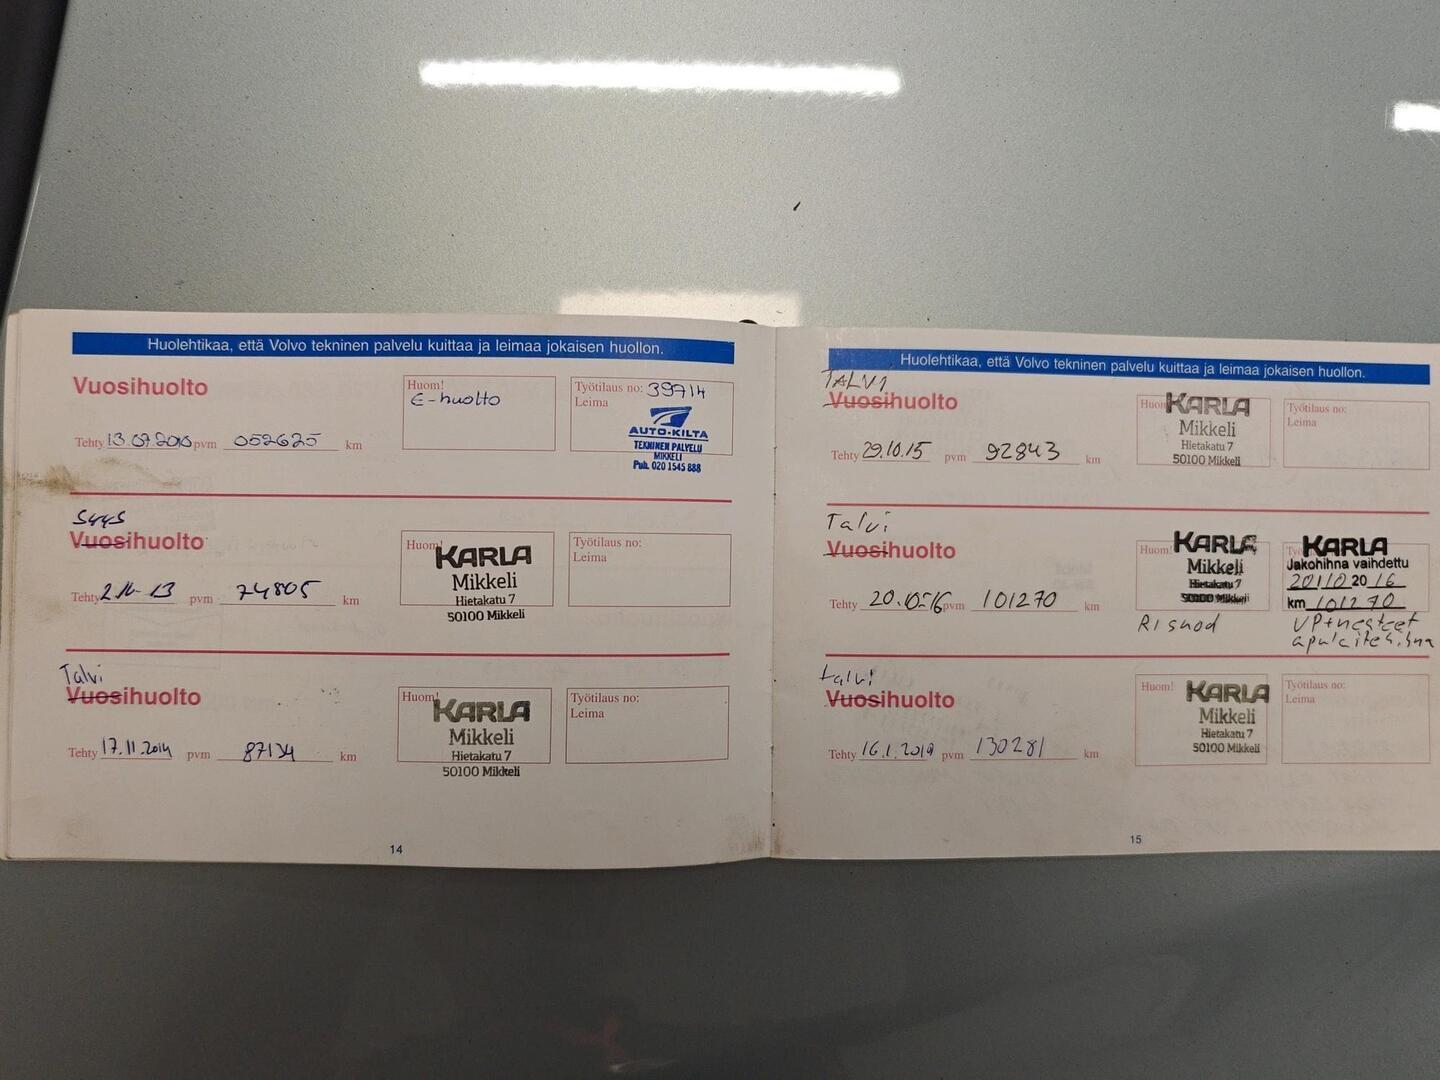 Huolehtikaa, että Volvo tekninen palvelu kuittaa ja leimaa jokaisen huollon.
Vuosihuolto
Huom!
E-huolto
Työtilaus no: 39714
Leima
AUTO-KILTA
TEKNINEN PALVELU
MIKKELI
Puh. 020 1545 888
Tehty 13.07.2010 pvm 052625 km
Syys
Vuosihuolto
Huom!
KARLA
Mikkeli
Hietakatu 7
50100 Mikkeli
Työtilaus no:
Leima
Tehty pvm 74805 km
Talvi
Vuosihuolto
Huom!
KARLA
Mikkeli
Hietakatu 7
50100 Mikkeli
Työtilaus no:
Leima
Tehty 17.11.2014 pvm 87134 km
14
Huolehtikaa, että Volvo tekninen palvelu kuittaa ja leimaa jokaisen huollon.
TALVI
Vuosihuolto
Huom!
KARLA
Mikkeli
Hietakatu 7
50100 Mikkeli
Työtilaus no:
Leima
Tehty 29.10.15 pvm 92843 km
Talvi
Vuosihuolto
Huom!
KARLA
Mikkeli
Hietakatu 7
50100 Mikkeli
KARLA
Jakohihna vaihdettu
20110 2016
km 101270
Tehty 20.10-16 pvm 101270 km
VP+nesteet
apulaitehihna
talvi
Vuosihuolto
Huom!
KARLA
Mikkeli
Hietakatu 7
50100 Mikkeli
Työtilaus no:
Leima
Tehty 16.1.2019 pvm 130281 km
15